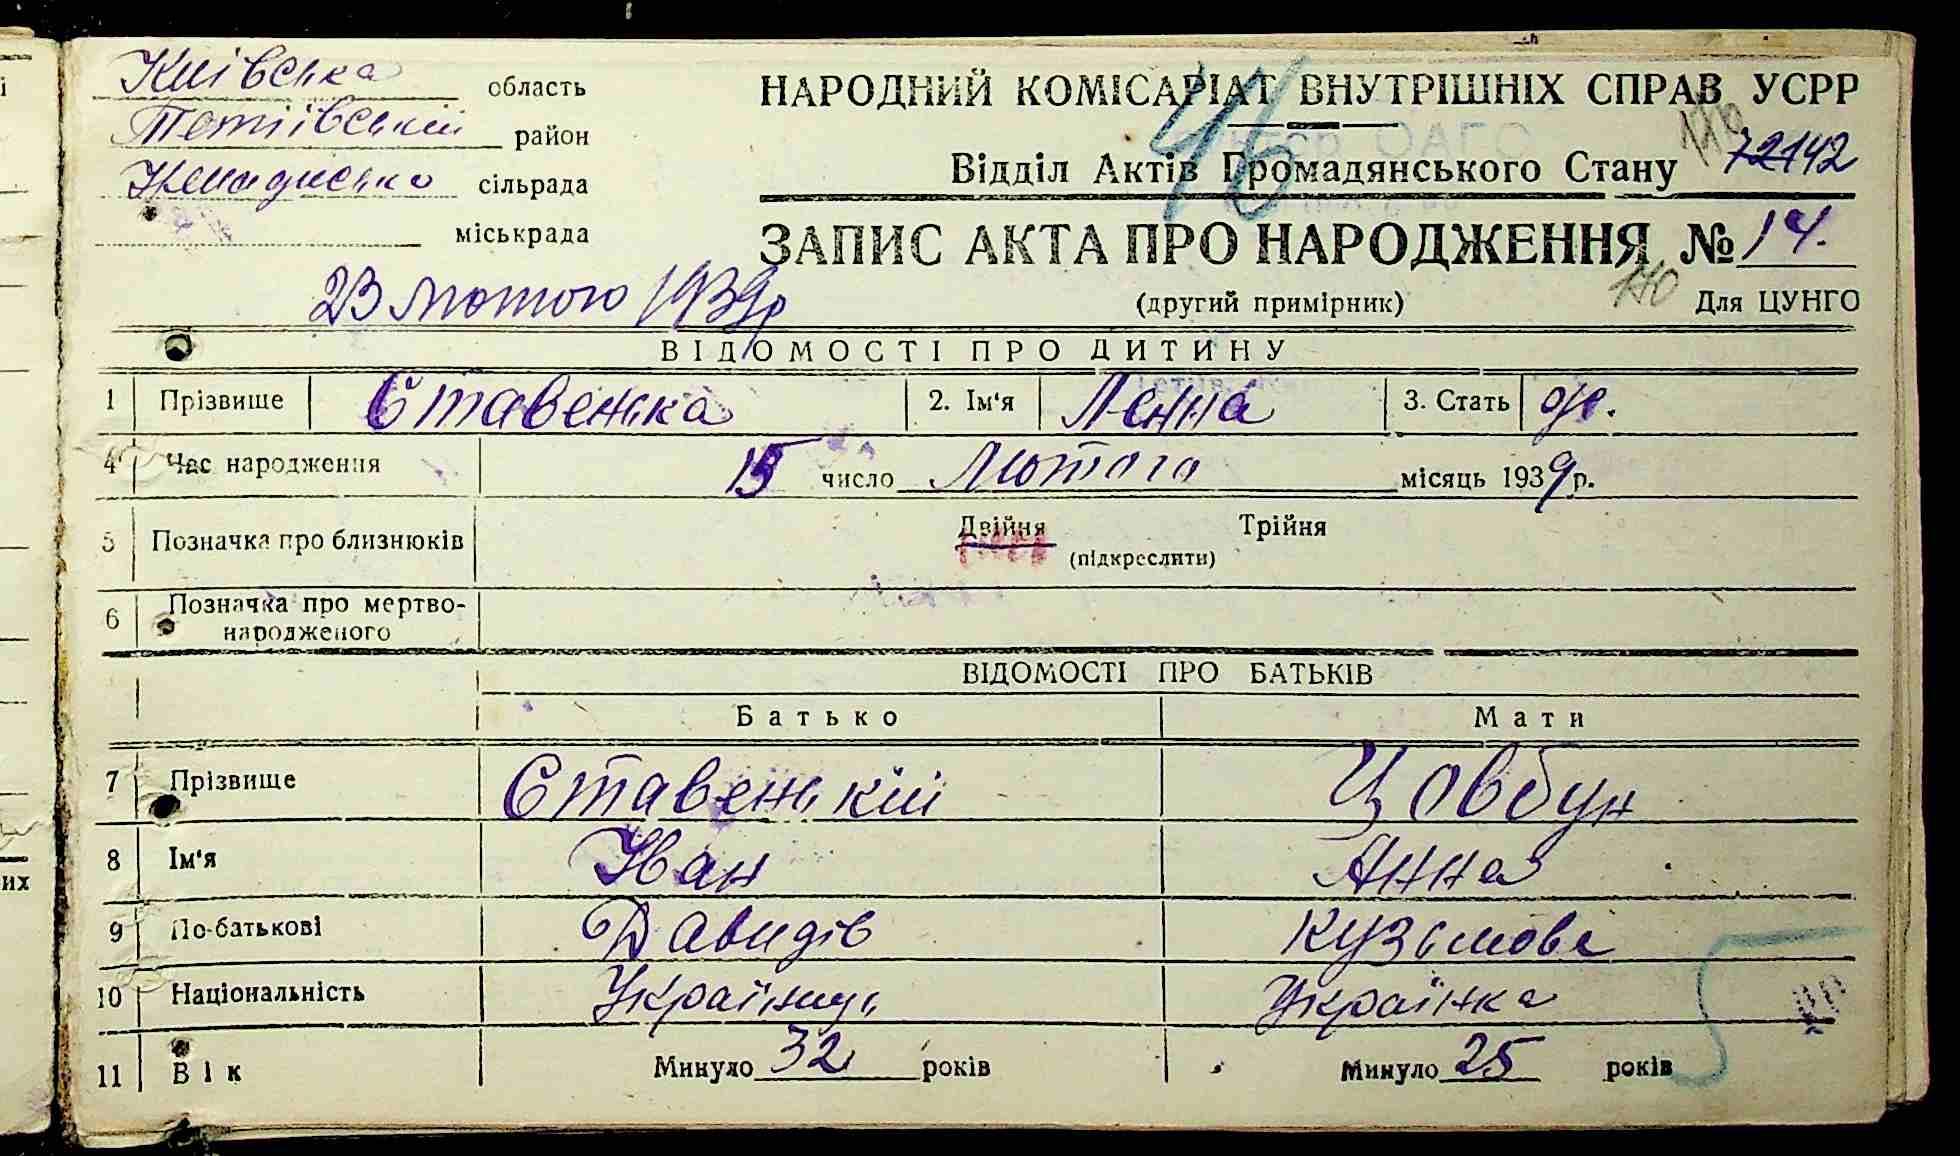 Київська область
Тетіївський район
Кашперівська сільрада
міськрада
НАРОДНИЙ КОМІСАРІАТ ВНУТРІШНІХ СПРАВ УСРР
46
Відділ Актів Громадянського Стану 72142
ЗАПИС АКТА ПРО НАРОДЖЕННЯ № 14.
(другий примірник) 140 Для ЦУНГО
23 лютого 1939р
ВІДОМОСТІ ПРО ДИТИНУ
1 Прізвище Ставенська 2. Ім'я Ленна 3. Стать ж.
4 Час народження 15 число Лютого місяць 1939р.
5 Позначка про близнюків Двійня Трійня
(підкреслити)
6 Позначка про мертво-
народженого
ВІДОМОСТІ ПРО БАТЬКІВ
Батько Мати
7 Прізвище Ставенький Цовбун
8 Ім'я Іван Анна
9 По-батькові Давидів Кузьмова
10 Національність Українець Українка
11 Вік Минуло 32 років Минуло 25 років
5
их